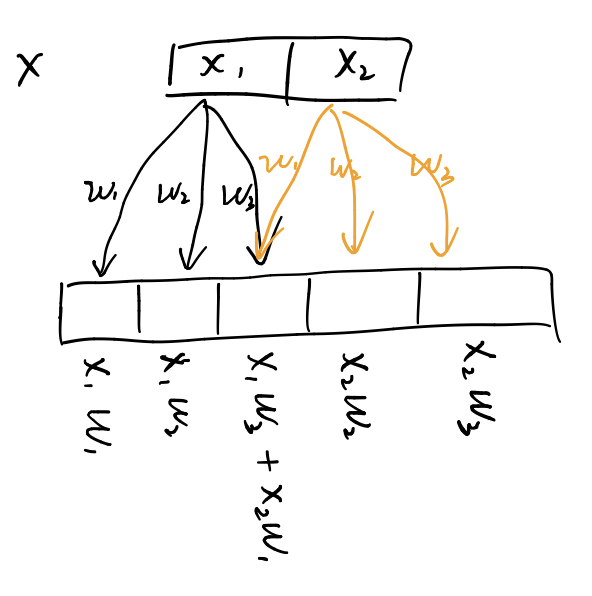 X
x₁ x₂
w₁ w₂ w₃ w₁ w₂ w₃
x₁w₁
x₁w₂
x₁w₃+x₂w₁
x₂w₂
x₂w₃